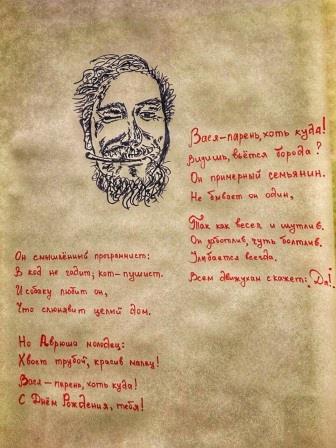 Вася-парень, хоть куда!
Видишь, вьётся борода?
Он примерный семьянин.
Не бывает он один,
Так как весел и шутлив.
Он заботлив, чуть болтлив.
Улыбается всегда.
Всем движухам скажет: „Да!"
Он смышлёный программист:
В код не гадит; кот-пушист.
И собаку любит он,
Что слюнявит целый дом.
Но Аврюша молодец:
Хвост трубой, красив малец!
Вася-парень, хоть куда!
С Днём Рождения, тебя!